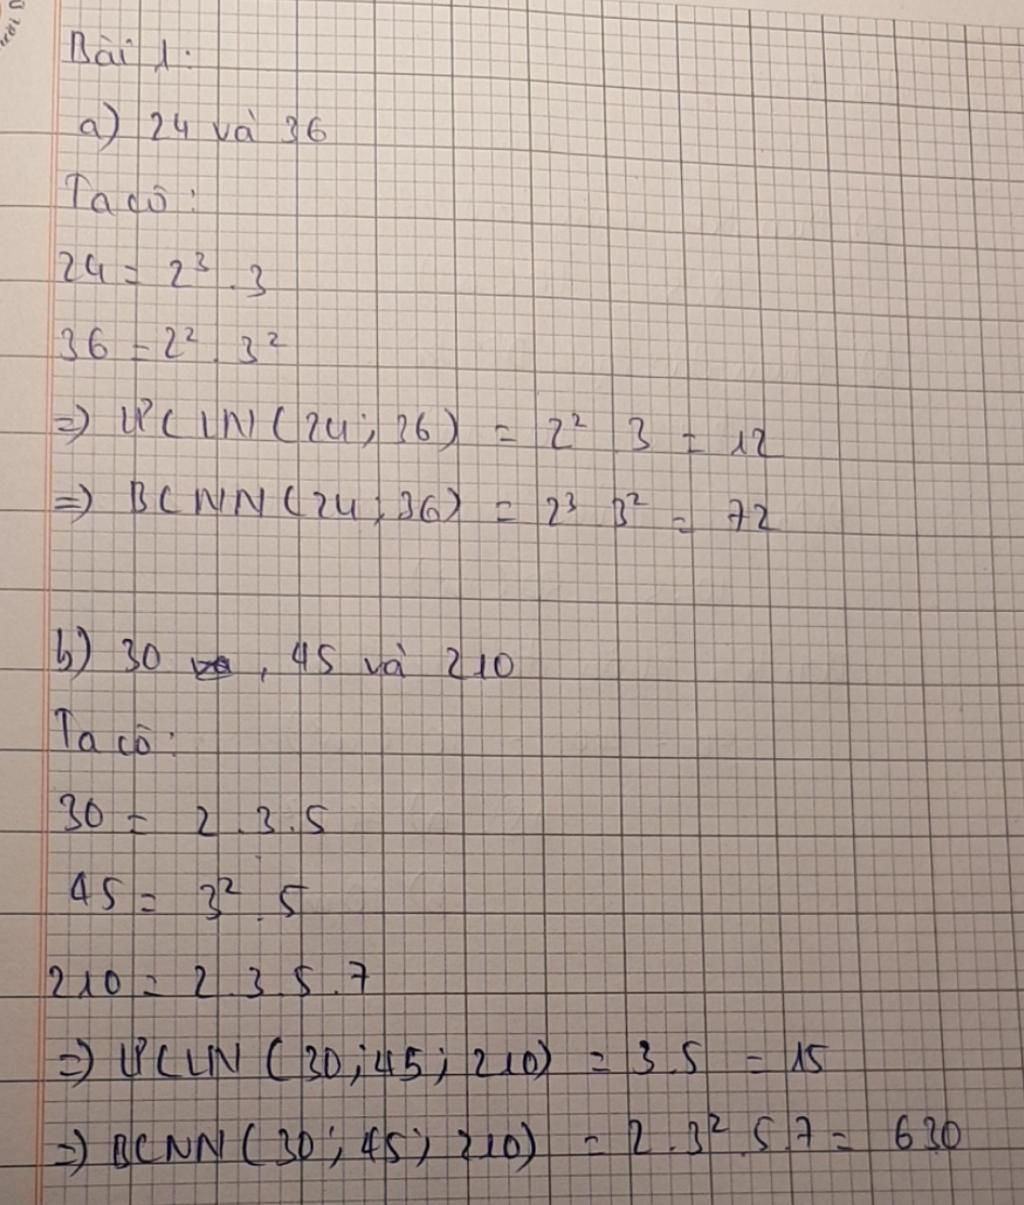 Bài 1:
a) 24 và 36
Ta có:
24 = 2³ . 3
36 = 2² . 3²
=) ƯCLN (24; 36) = 2² 3 = 12
=) BCNN (24; 36) = 2³ 3² = 72
b) 30 , 45 và 210
Ta có:
30 = 2 . 3 . 5
45 = 3² . 5
210 = 2 . 3 . 5 . 7
=) ƯCLN (30; 45; 210) = 3.5 = 15
=) BCNN (30; 45; 210) = 2 . 3² . 5.7 = 630